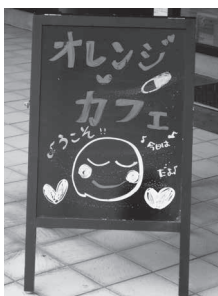 オレンジ
カフェ
♪ようこそ!!
♪今日は♪
だよ♪